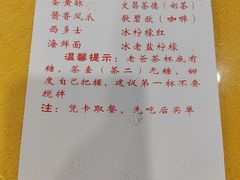 蛋黄酥 文昌茶德(奶茶)
酱香凤爪 歌碧欧(咖啡)
西多士 冰柠檬红
海鲜面 冰老盐柠檬
温馨提示:老爸茶杯底有
糖,茶壶(茶二)无糖,甜
度自己把握,建议第一杯不要
搅拌
注:凭卡取餐,先吃后买单